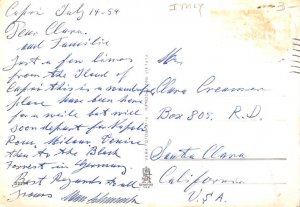 Capri July 14-59
ITALY
3
Dear Clara
and Familie
Just a few lines
from the Iland of
Capri this is a wonderful
place have been here
for a while but will
soon depart for Napoli
Rom, Milano, Venice
then to the Black
Forest in Germany.
Best Regards to all
from
Mrs
Clara Creamer
Box 805. R.D.
Santa Clara
California
U.S.A.